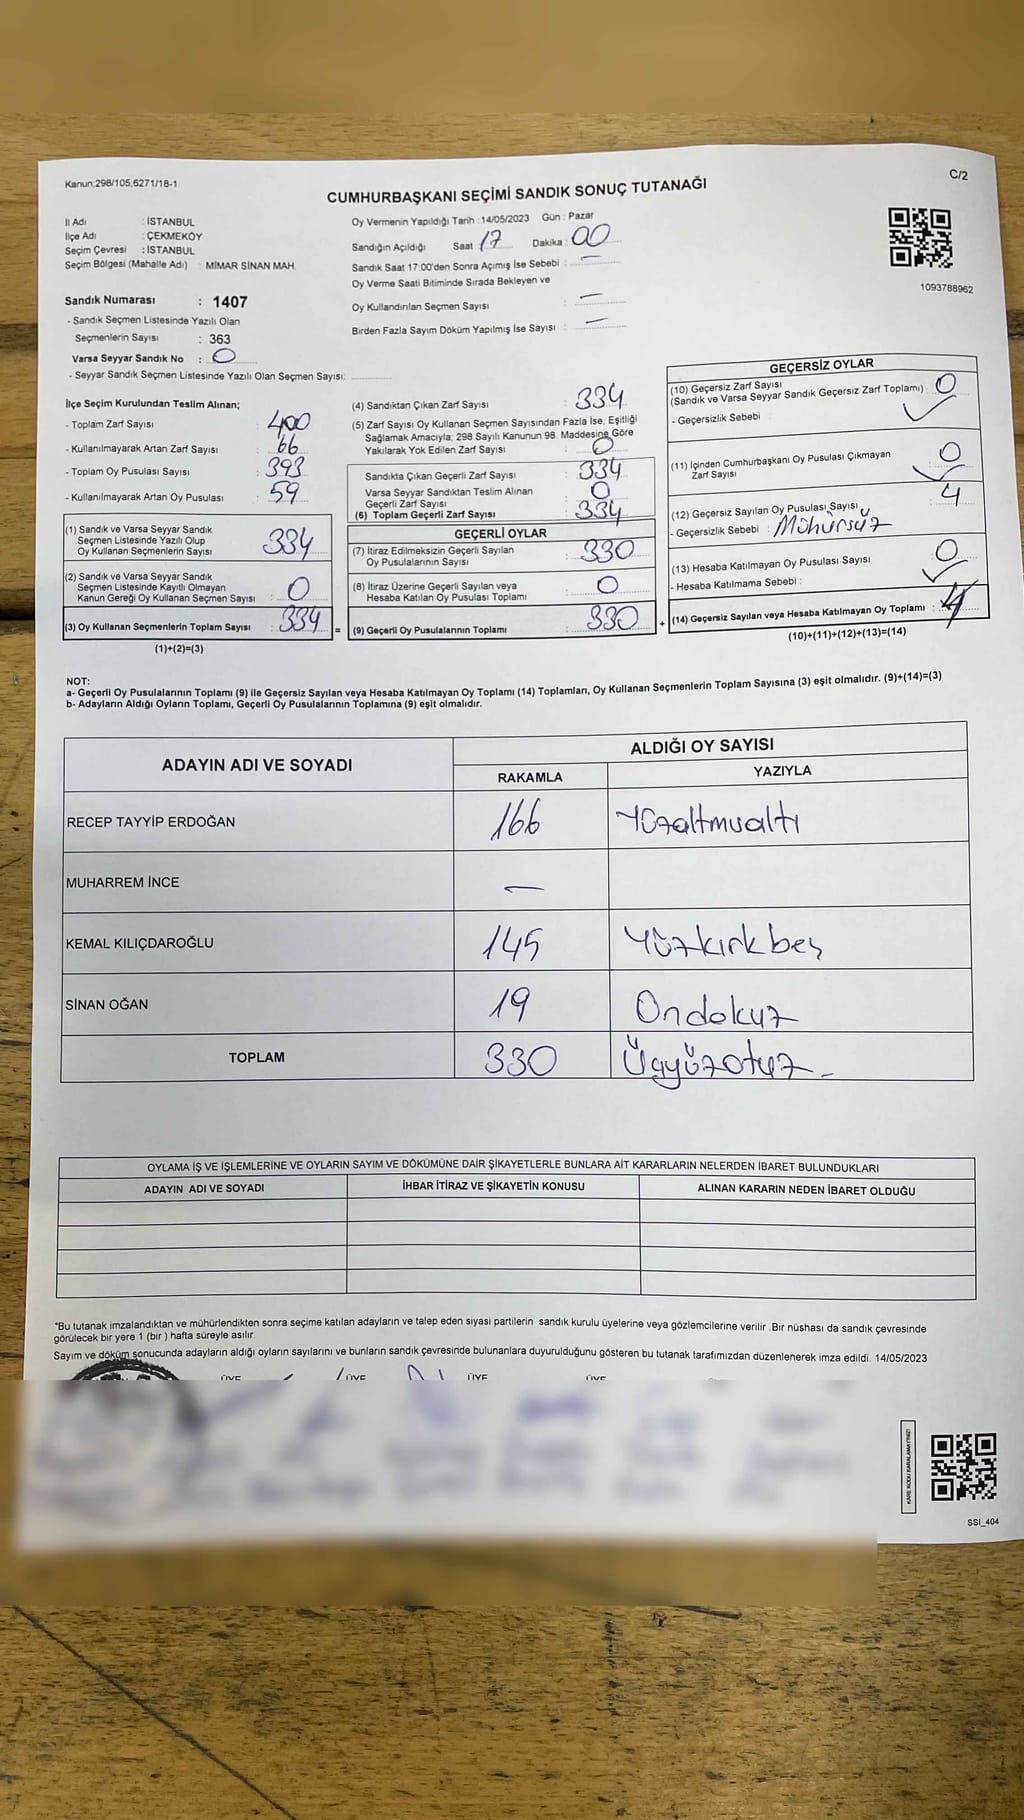 Kanun;298/105;6271/18-1
C/2
CUMHURBAŞKANI SEÇİMİ SANDIK SONUÇ TUTANAĞI
İl Adı : İSTANBUL
İlçe Adı : ÇEKMEKÖY
Seçim Çevresi : İSTANBUL
Seçim Bölgesi (Mahalle Adı) : MİMAR SİNAN MAH.
Sandık Numarası : 1407
- Sandık Seçmen Listesinde Yazılı Olan
Seçmenlerin Sayısı : 363
Varsa Seyyar Sandık No : 0
- Seyyar Sandık Seçmen Listesinde Yazılı Olan Seçmen Sayısı:
Oy Vermenin Yapıldığı Tarih : 14/05/2023 Gün : Pazar
Sandığın Açıldığı Saat 17 Dakika : 00
Sandık Saat 17:00'den Sonra Açımış İse Sebebi : —
Oy Verme Saati Bitiminde Sırada Bekleyen ve
Oy Kullandırılan Seçmen Sayısı : —
Birden Fazla Sayım Döküm Yapılmış İse Sayısı : —
1093788962
İlçe Seçim Kurulundan Teslim Alınan;
- Toplam Zarf Sayısı : 400
- Kullanılmayarak Artan Zarf Sayısı : 66
- Toplam Oy Pusulası Sayısı : 393
- Kullanılmayarak Artan Oy Pusulası : 59
(1) Sandık ve Varsa Seyyar Sandık
Seçmen Listesinde Yazılı Olup
Oy Kullanan Seçmenlerin Sayısı : 334
(2) Sandık ve Varsa Seyyar Sandık
Seçmen Listesinde Kayıtlı Olmayan
Kanun Gereği Oy Kullanan Seçmen Sayısı : 0
(3) Oy Kullanan Seçmenlerin Toplam Sayısı : 334
(1)+(2)=(3)
(4) Sandıktan Çıkan Zarf Sayısı : 334
(5) Zarf Sayısı Oy Kullanan Seçmen Sayısından Fazla İse, Eşitliği
Sağlamak Amacıyla; 298 Sayılı Kanunun 98. Maddesine Göre
Yakılarak Yok Edilen Zarf Sayısı : 0
Sandıkta Çıkan Geçerli Zarf Sayısı : 334
Varsa Seyyar Sandıktan Teslim Alınan
Geçerli Zarf Sayısı : 0
(6) Toplam Geçerli Zarf Sayısı : 334
GEÇERLİ OYLAR
(7) İtiraz Edilmeksizin Geçerli Sayılan
Oy Pusulalarının Sayısı : 330
(8) İtiraz Üzerine Geçerli Sayılan veya
Hesaba Katılan Oy Pusulası Toplamı : 0
= (9) Geçerli Oy Pusulalarının Toplamı : 330
GEÇERSİZ OYLAR
(10) Geçersiz Zarf Sayısı
(Sandık ve Varsa Seyyar Sandık Geçersiz Zarf Toplamı) : 0
- Geçersizlik Sebebi :
(11) İçinden Cumhurbaşkanı Oy Pusulası Çıkmayan
Zarf Sayısı : 0
(12) Geçersiz Sayılan Oy Pusulası Sayısı : 4
- Geçersizlik Sebebi : Mühürsüz
(13) Hesaba Katılmayan Oy Pusulası Sayısı : 0
- Hesaba Katılmama Sebebi :
+ (14) Geçersiz Sayılan veya Hesaba Katılmayan Oy Toplamı : 4
(10)+(11)+(12)+(13)=(14)
NOT:
a- Geçerli Oy Pusulalarının Toplamı (9) ile Geçersiz Sayılan veya Hesaba Katılmayan Oy Toplamı (14) Toplamları, Oy Kullanan Seçmenlerin Toplam Sayısına (3) eşit olmalıdır. (9)+(14)=(3)
b- Adayların Aldığı Oyların Toplamı, Geçerli Oy Pusulalarının Toplamına (9) eşit olmalıdır.
ADAYIN ADI VE SOYADI
ALDIĞI OY SAYISI
RAKAMLA YAZIYLA
RECEP TAYYİP ERDOĞAN 166 Yüzaltmışaltı
MUHARREM İNCE —
KEMAL KILIÇDAROĞLU 145 Yüzkırkbeş
SİNAN OĞAN 19 Ondokuz
TOPLAM 330 Üçyüzotuz –
OYLAMA İŞ VE İŞLEMLERİNE VE OYLARIN SAYIM VE DÖKÜMÜNE DAİR ŞİKAYETLERLE BUNLARA AİT KARARLARIN NELERDEN İBARET BULUNDUKLARI
ADAYIN ADI VE SOYADI İHBAR İTİRAZ VE ŞİKAYETİN KONUSU ALINAN KARARIN NEDEN İBARET OLDUĞU
*Bu tutanak imzalandıktan ve mühürlendikten sonra seçime katılan adayların ve talep eden siyasi partilerin sandık kurulu üyelerine veya gözlemcilerine verilir .Bir nüshası da sandık çevresinde
görülecek bir yere 1 (bir ) hafta süreyle asılır.
Sayım ve döküm sonucunda adayların aldığı oyların sayılarını ve bunların sandık çevresinde bulunanlara duyurulduğunu gösteren bu tutanak tarafımızdan düzenlenerek imza edildi. 14/05/2023
ÜYE ÜYE ÜYE ÜYE
KARE KODU KARALAMAYINIZ!
SSI_404